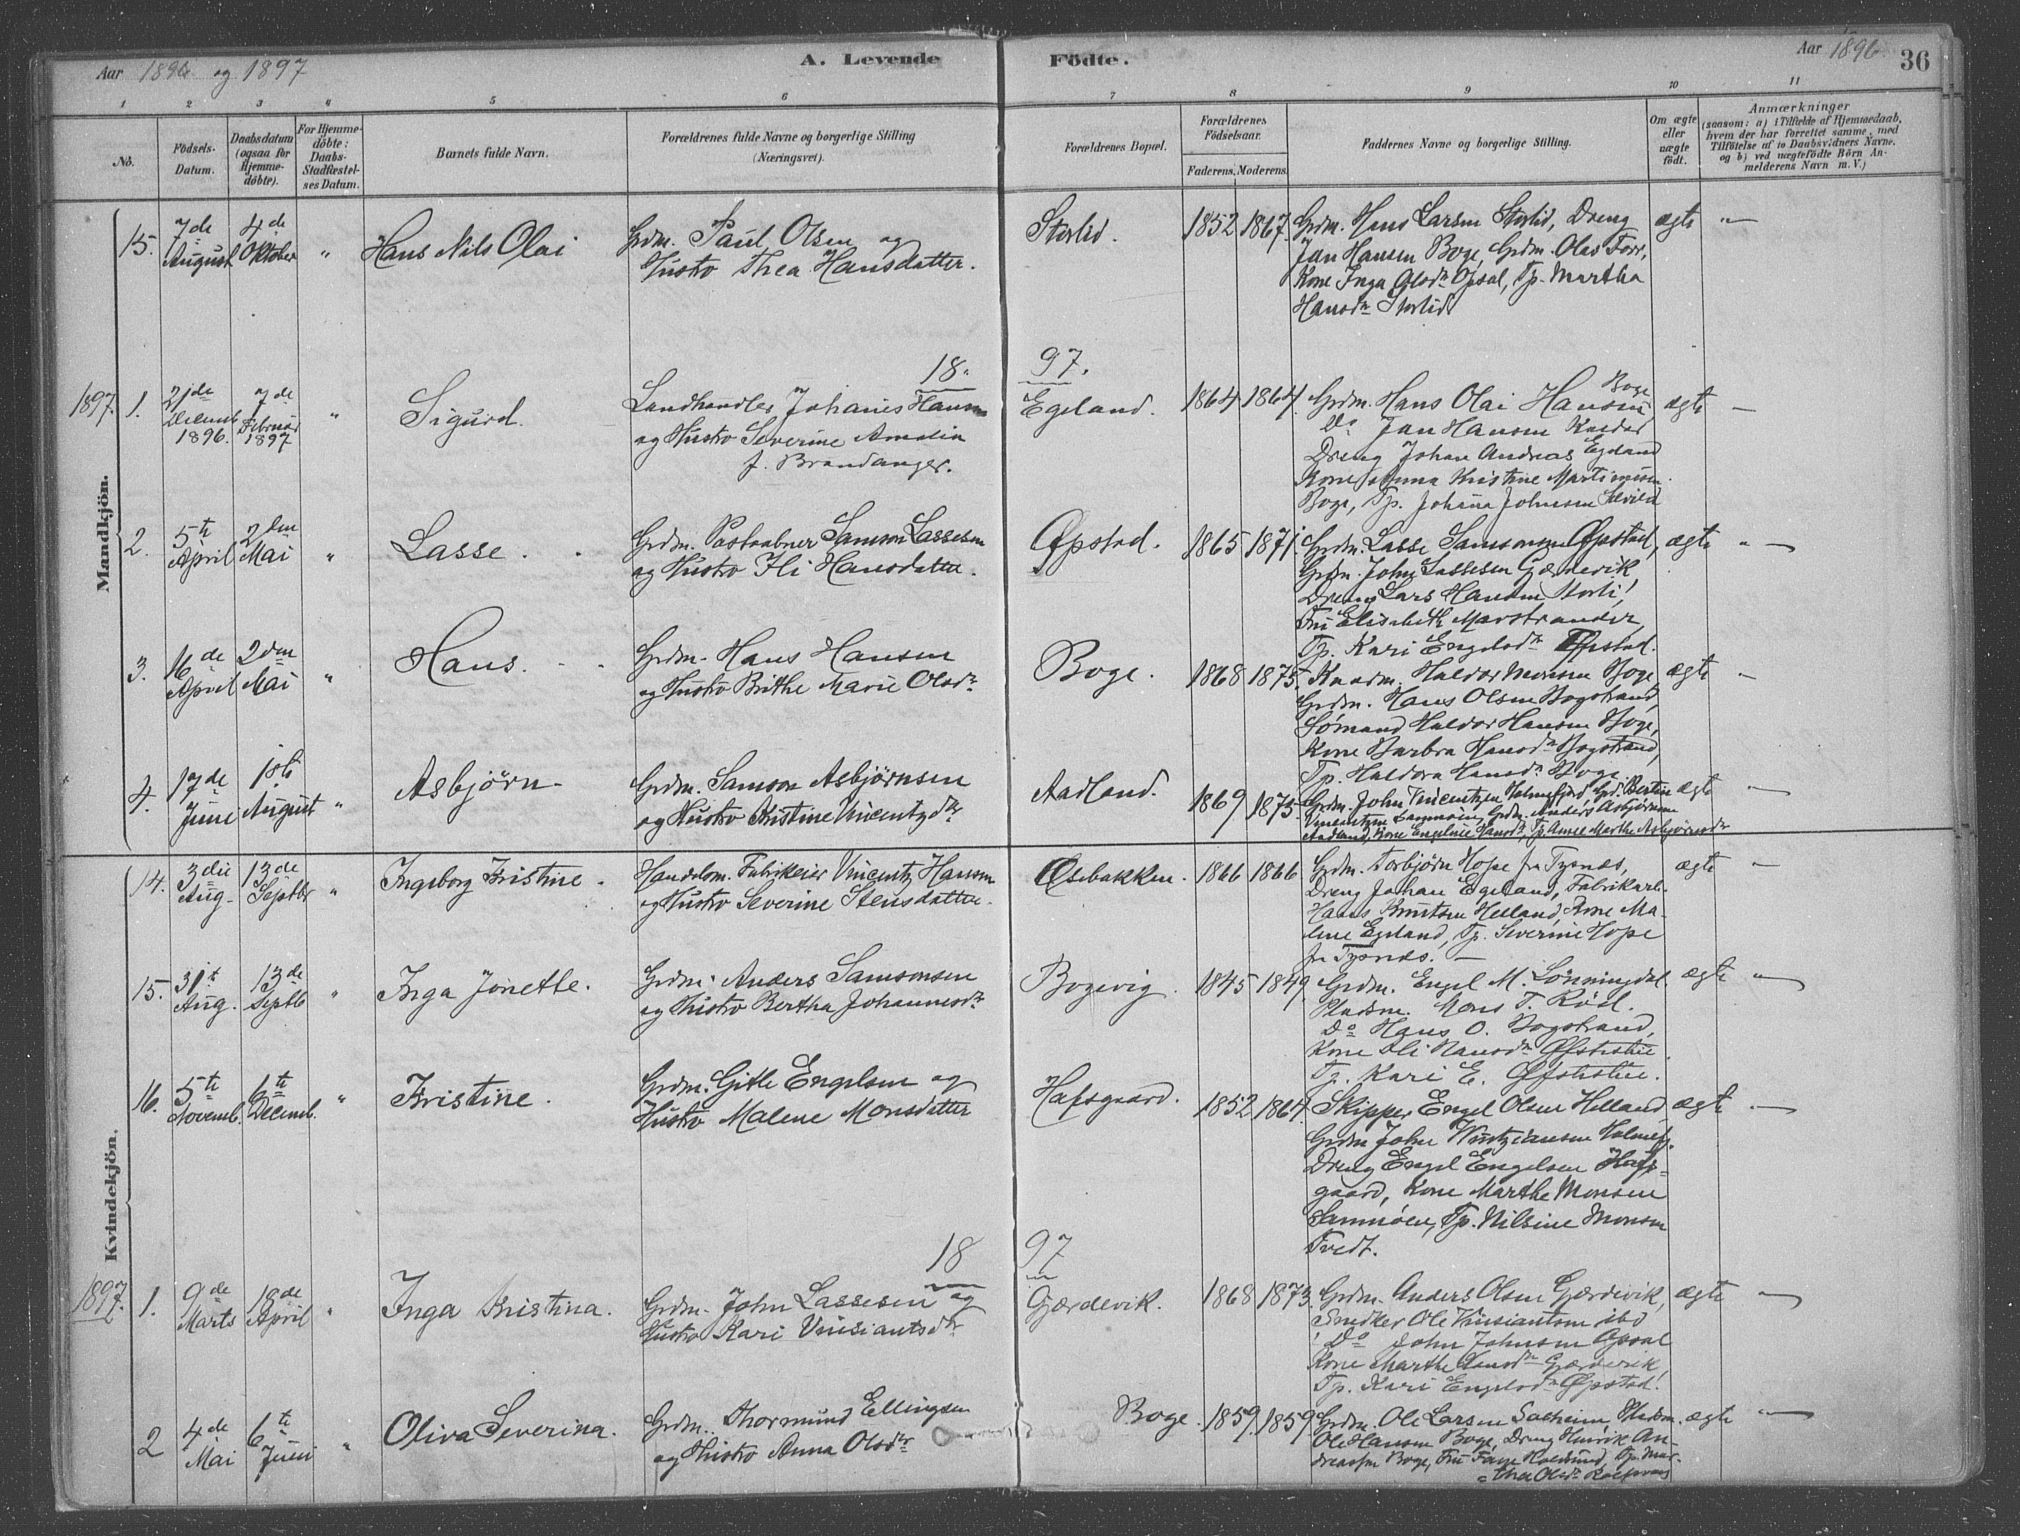 Aar 1896 og 1897
A. Levende Födte.
Aar 1896.
36
1 2 3 4 5 6 7 8 9 10 11
No.
Födsels-Datum.
Daabsdatum (ogsaa for Hjemme-döbte).
For Hjemme-döbte: Daabs-Stadfæstel-ses Datum.
Barnets fulde Navn.
Forældrenes fulde Navne og borgerlige Stilling (Næringsvei).
Forældrenes Bopæl.
Forældrenes Födselsaar.
Faderens. Moderens.
Faddernes Navne og borgerlige Stilling.
Om ægte eller uægte födt.
Anmærkninger
(saasom: a) i Tilfælde af Hjemmedaab, hvem der har forrettet samme, med Tilföielse af to Daabsvidners Navne. og b) ved uægtefödte Börn An-melderens Navn m. V.)
Mandkjön.
15. 7de August 4de Oktober " Hans Nils Olai
Grdm. Paul Olsen og
Hustro Thea Hansdatter.
Storlid. 1852 1867.
Grdm. Hans Larsen Storlid, Dreng
Jan Hansen Boge, Grdm. Olas Forr,
Kone Inga Olsdr Opsal, Tp. Martha
Hansdr Storlid
ægte "
18 97.
1897. 1. 21de Decemb 1896. 7de Februar 1897 " Sigurd.
Landhandler Johanes Hansen
og Hustro Severine Amalia
f. Brandanger.
Egeland. 1864 1864.
Grdm. Hans Olai Hansen Boge
Do Jan Hansen
Dreng Johan Andreas Egeland
Kone Anna Kristine Martinusen
Boge, Tp. Johana Johnsen
ægte
2. 5te April 2den Mai " Lasse.
Grdm. Postaabner Samson Lassesen
og Hustro Ili Hansdatter.
Øpstad. 1865 1871.
Grdm. Lasse Samsonsen Øpstad,
Grdm. John Lassesen Gjærdevik
Dreng Lars Hansen Storli,
Fru Elisabeth Marstrander,
Tp. Kari Engelsdr Øpstad.
ægte "
3. 16de April 2den Mai " Hans.
Grdm. Hans Hansen
og Hustro Brithe Marie Olsdr
Boge. 1868 1875.
Haldor Monsen Boge
Grdm. Hans Olsen Bogstrand,
Sømand Haldor Hansen Boge,
Kone Barbra Hansdr Bogstrand,
Tp. Haldora Hansdr Boge
ægte
4. 17de Juni 1ste August " Asbjørn
Grdm. Samson Asbjørnsen
og Hustro Kristine Vincentzdtr
Aadland. 1869 1875.
Grdm. John Vincentzen Holmefjord, Grd. Bertin
Vincentzen Samnøien, Grdm. Anders Asbjørnsen
Aadland, Kone Engeline Hansdr, Tp. Anne Marthe Asbjørnsdr
ægte
Kvindekjön.
14. 3die Aug. 13de Septbr " Ingeborg Kristine.
Handelsm. Fabrikeier Vincentz Hansen
og Hustro Severine Stensdatter.
Osebakken. 1866 1866
Grdm. Torbjørn Hope fra Tysnæs,
Dreng Johan Egeland, Fabrikarb.
Hans Knutsen Helland, Kone Ma-
lene Egeland, Tp. Severine Hope
fr Tysnæs.
ægte
15. 31te Aug. 13de Septb " Inga Jonette.
Grdm. Anders Samsonsen
og Hustro Bertha Johannesdr
Bogevig. 1845 1849
Grdm. Engel M. Lønningdal.
Pladsm. Mons T. Røst.
Do Hans O. Bogstrand,
Kone Oli Hansdr Øfstestue.
Tp. Kari E. Øfstestue.
ægte "
16. 5te Novemb. 6te Decemb. " Kristine.
Grdm. Gitle Engelsen og
Hustro Malene Monsdatter
Hafsgaard. 1852 1864.
Skipper Engel Olsen Helland
Grdm John Holmefj.
Dreng Engel Engelsen Hafs-
gaard, Kone Marthe Monsen
Samnøen, Tp. Nilsine Monsen
Tvedt.
ægte
18 97
1897. 1. 9de Marts 18de April " Inga Kristina.
Grdm. John Lassesen og
Hustro Kari Vinsiantsdr
Gjærdevik. 1868 1873.
Grdm. Anders Olsen Gjærdevik,
Snedker Ole Vinsiantsen ibd
Do John Johnsen Opsal
Kone Marthe Hansdr Gjærdevik,
Tp. Kari Engelsdr Øpstad.
ægte
2 4de Mai 6te Juni " Oliva Severina.
Grdm. Thormund Ellingsen
og Hustro Anna Olsdr
Boge. 1859. 1859
Grdm. Ole Larsen Solheim,
Ole Hansen Boge, Dreng Henrik An-
dreassen Boge, Fru Tp. Mar-
tha Olsdr
ægte